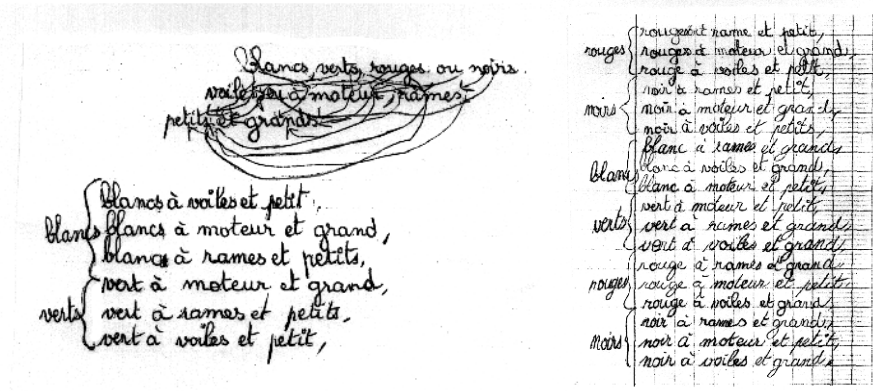 blancs, verts, rouges ou noirs.
voiles, à moteur, rames.
petits et grands
blancs
blancs à voiles et petit,
blancs à moteur et grand,
blancs à rames et petits,
verts
vert à moteur et grand,
vert à rames et petits,
vert à voiles et petit,
rouges
rouges à rame et petit,
rouges à moteur et grand,
rouge à voiles et petit,
noirs
noir à rames et petit,
noir à moteur et grand,
noir à voiles et petits,
blanc
blanc à rames et grands,
blanc à voiles et grand,
blanc à moteur et petits,
verts
vert à moteur et petit,
vert à rames et grands,
vert à voiles et grand,
rouges
rouge à rames et grand,
rouge à moteur et petit,
rouge à voiles et grand,
noirs
noir à rames et grand,
noir à moteur et petit,
noir à voiles et grand.